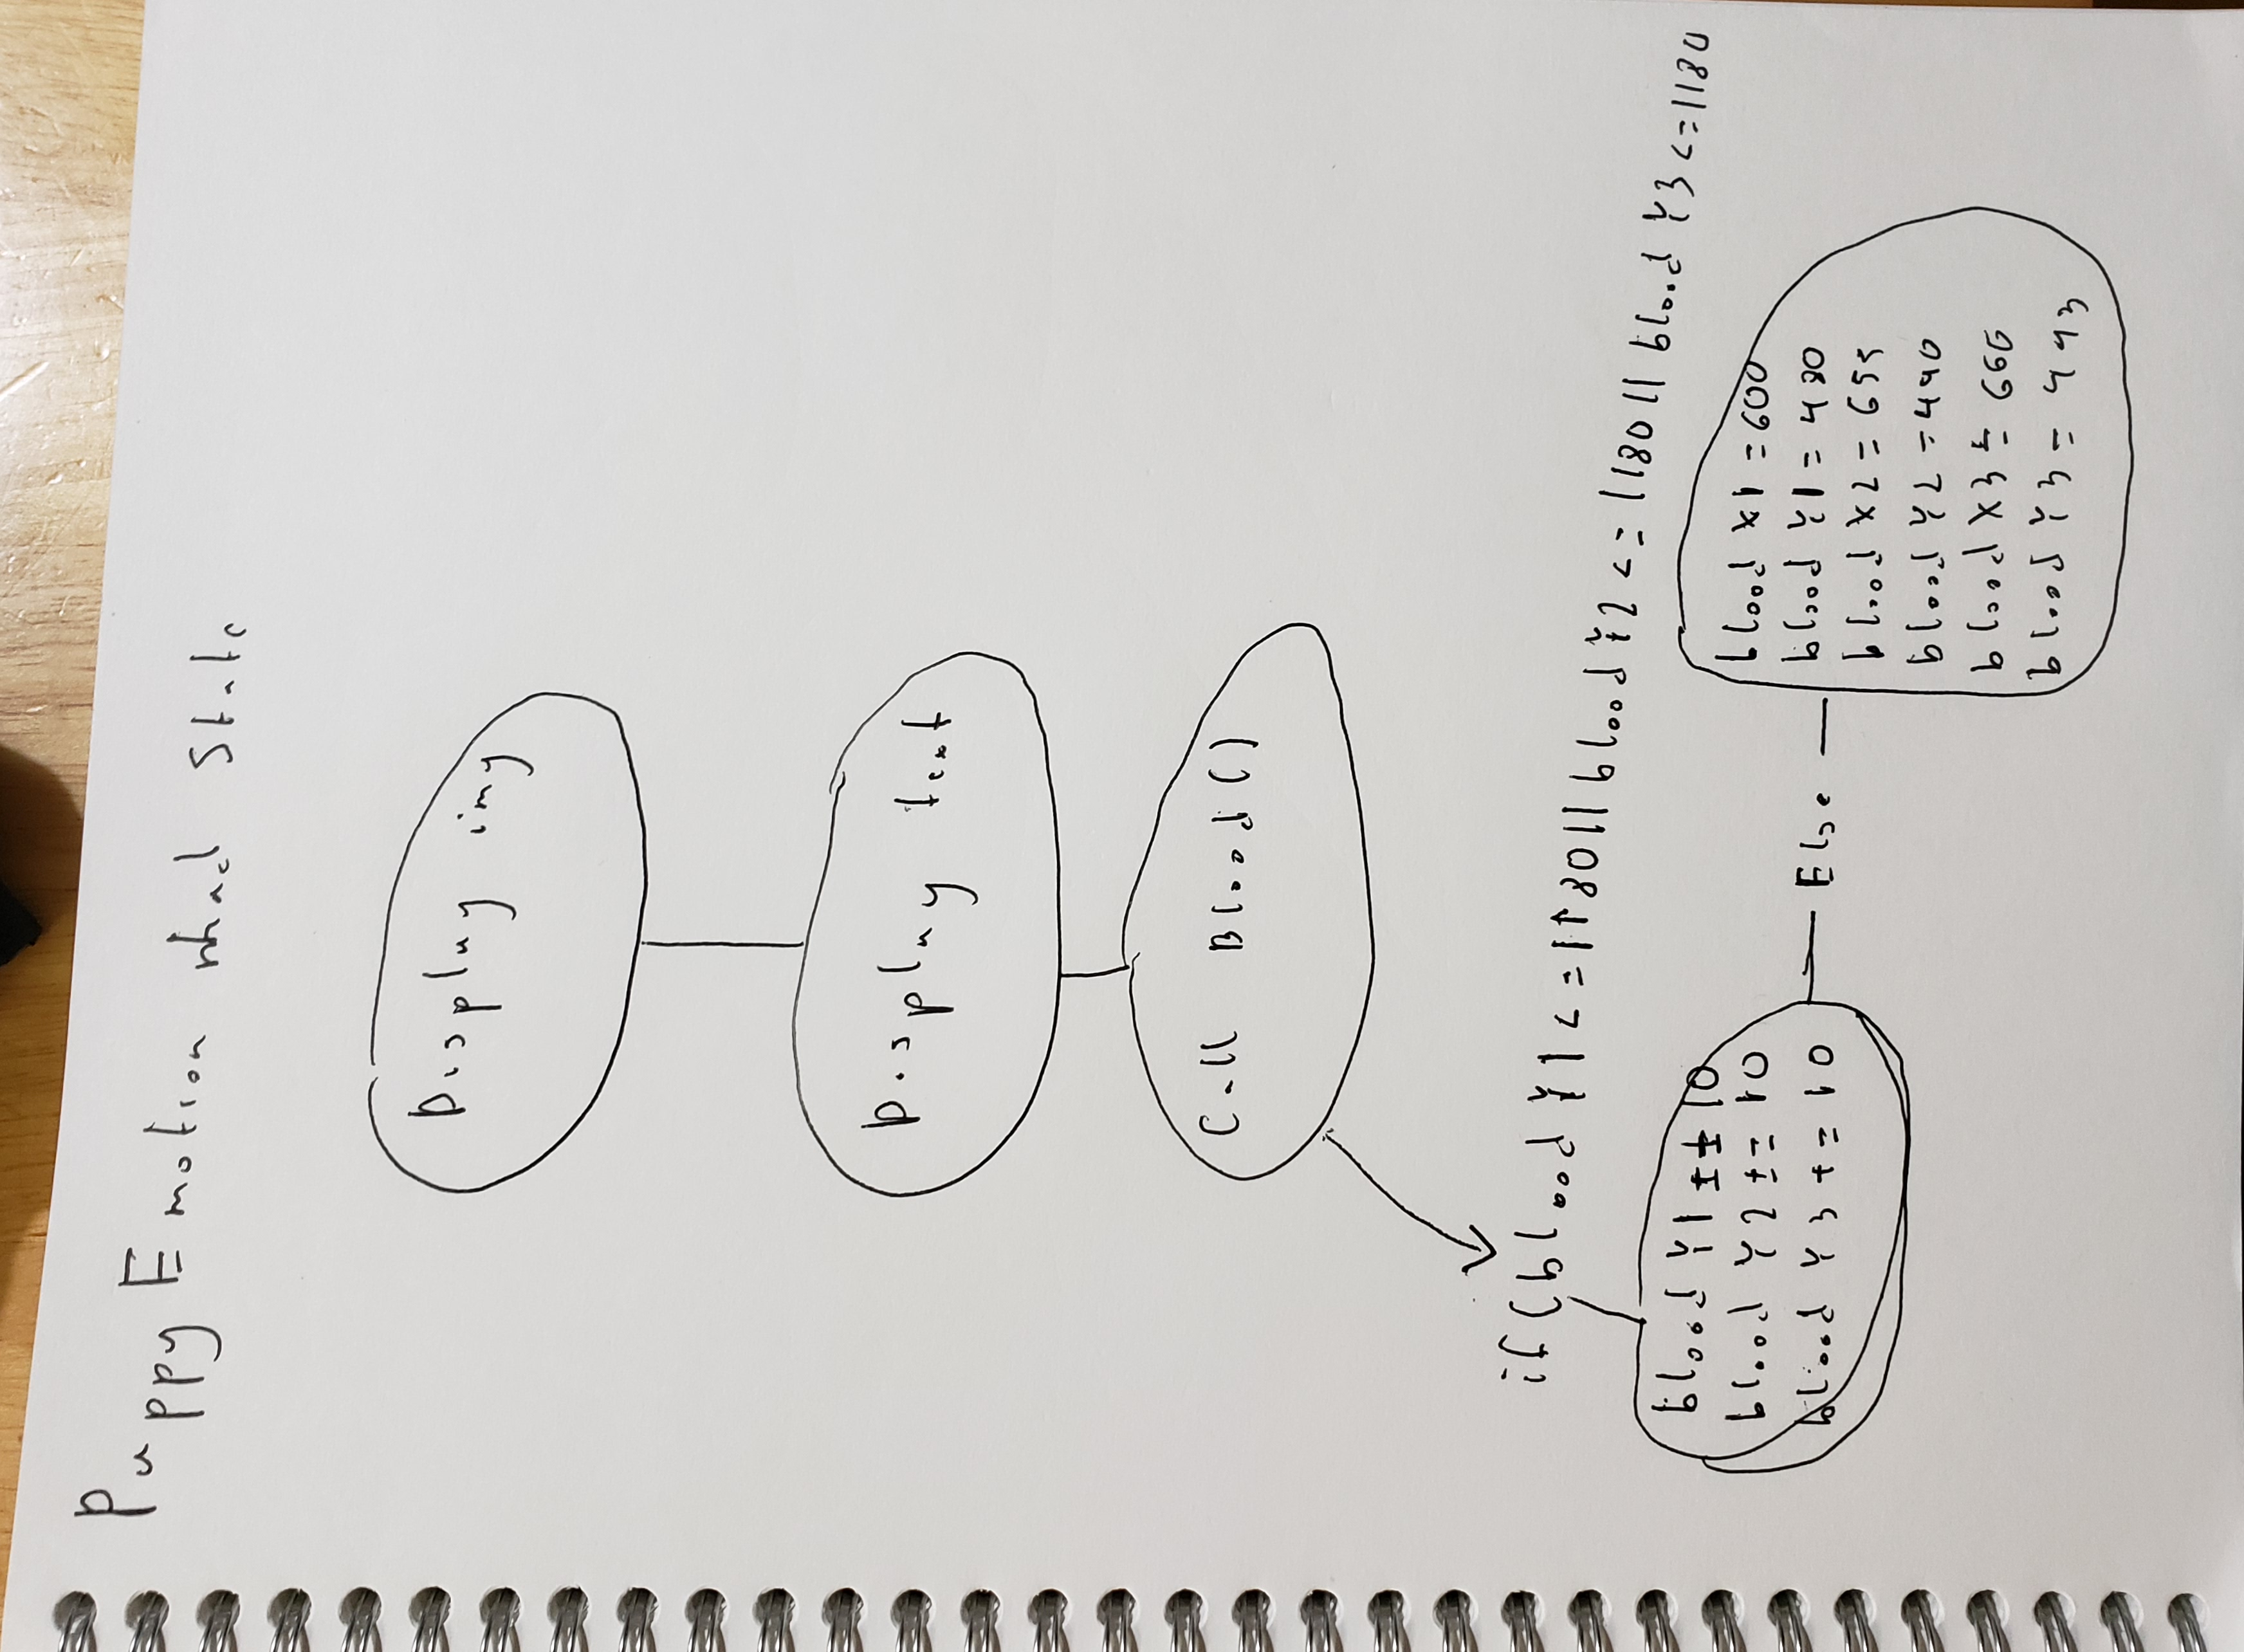 Puppy Emotion mad State
Display img
Display text
Call Blood()
if (blood Y1 <= 1180 || blood Y2 <= 1180 || blood Y3 <= 1180
blood Y1 += 10
blood Y2 += 10
blood Y3 += 10
Else
blood X1 = 600
blood Y1 = 480
blood X2 = 655
blood Y2 = 490
blood X3 = 660
blood Y3 = 493